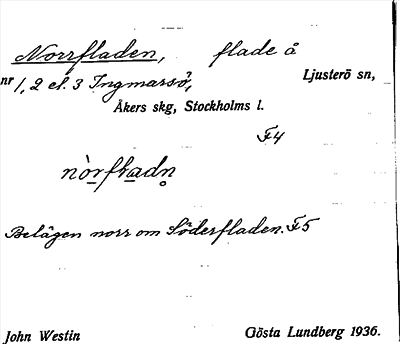 Norrfladen, flade å
nr 1, 2 el. 3 Ingmarsö, Ljusterö sn,
Åkers skg, Stockholms l.
F4
nòrfladn̥
Belägen norr om Söderfladen. F5
John Westin Gösta Lundberg 1936.